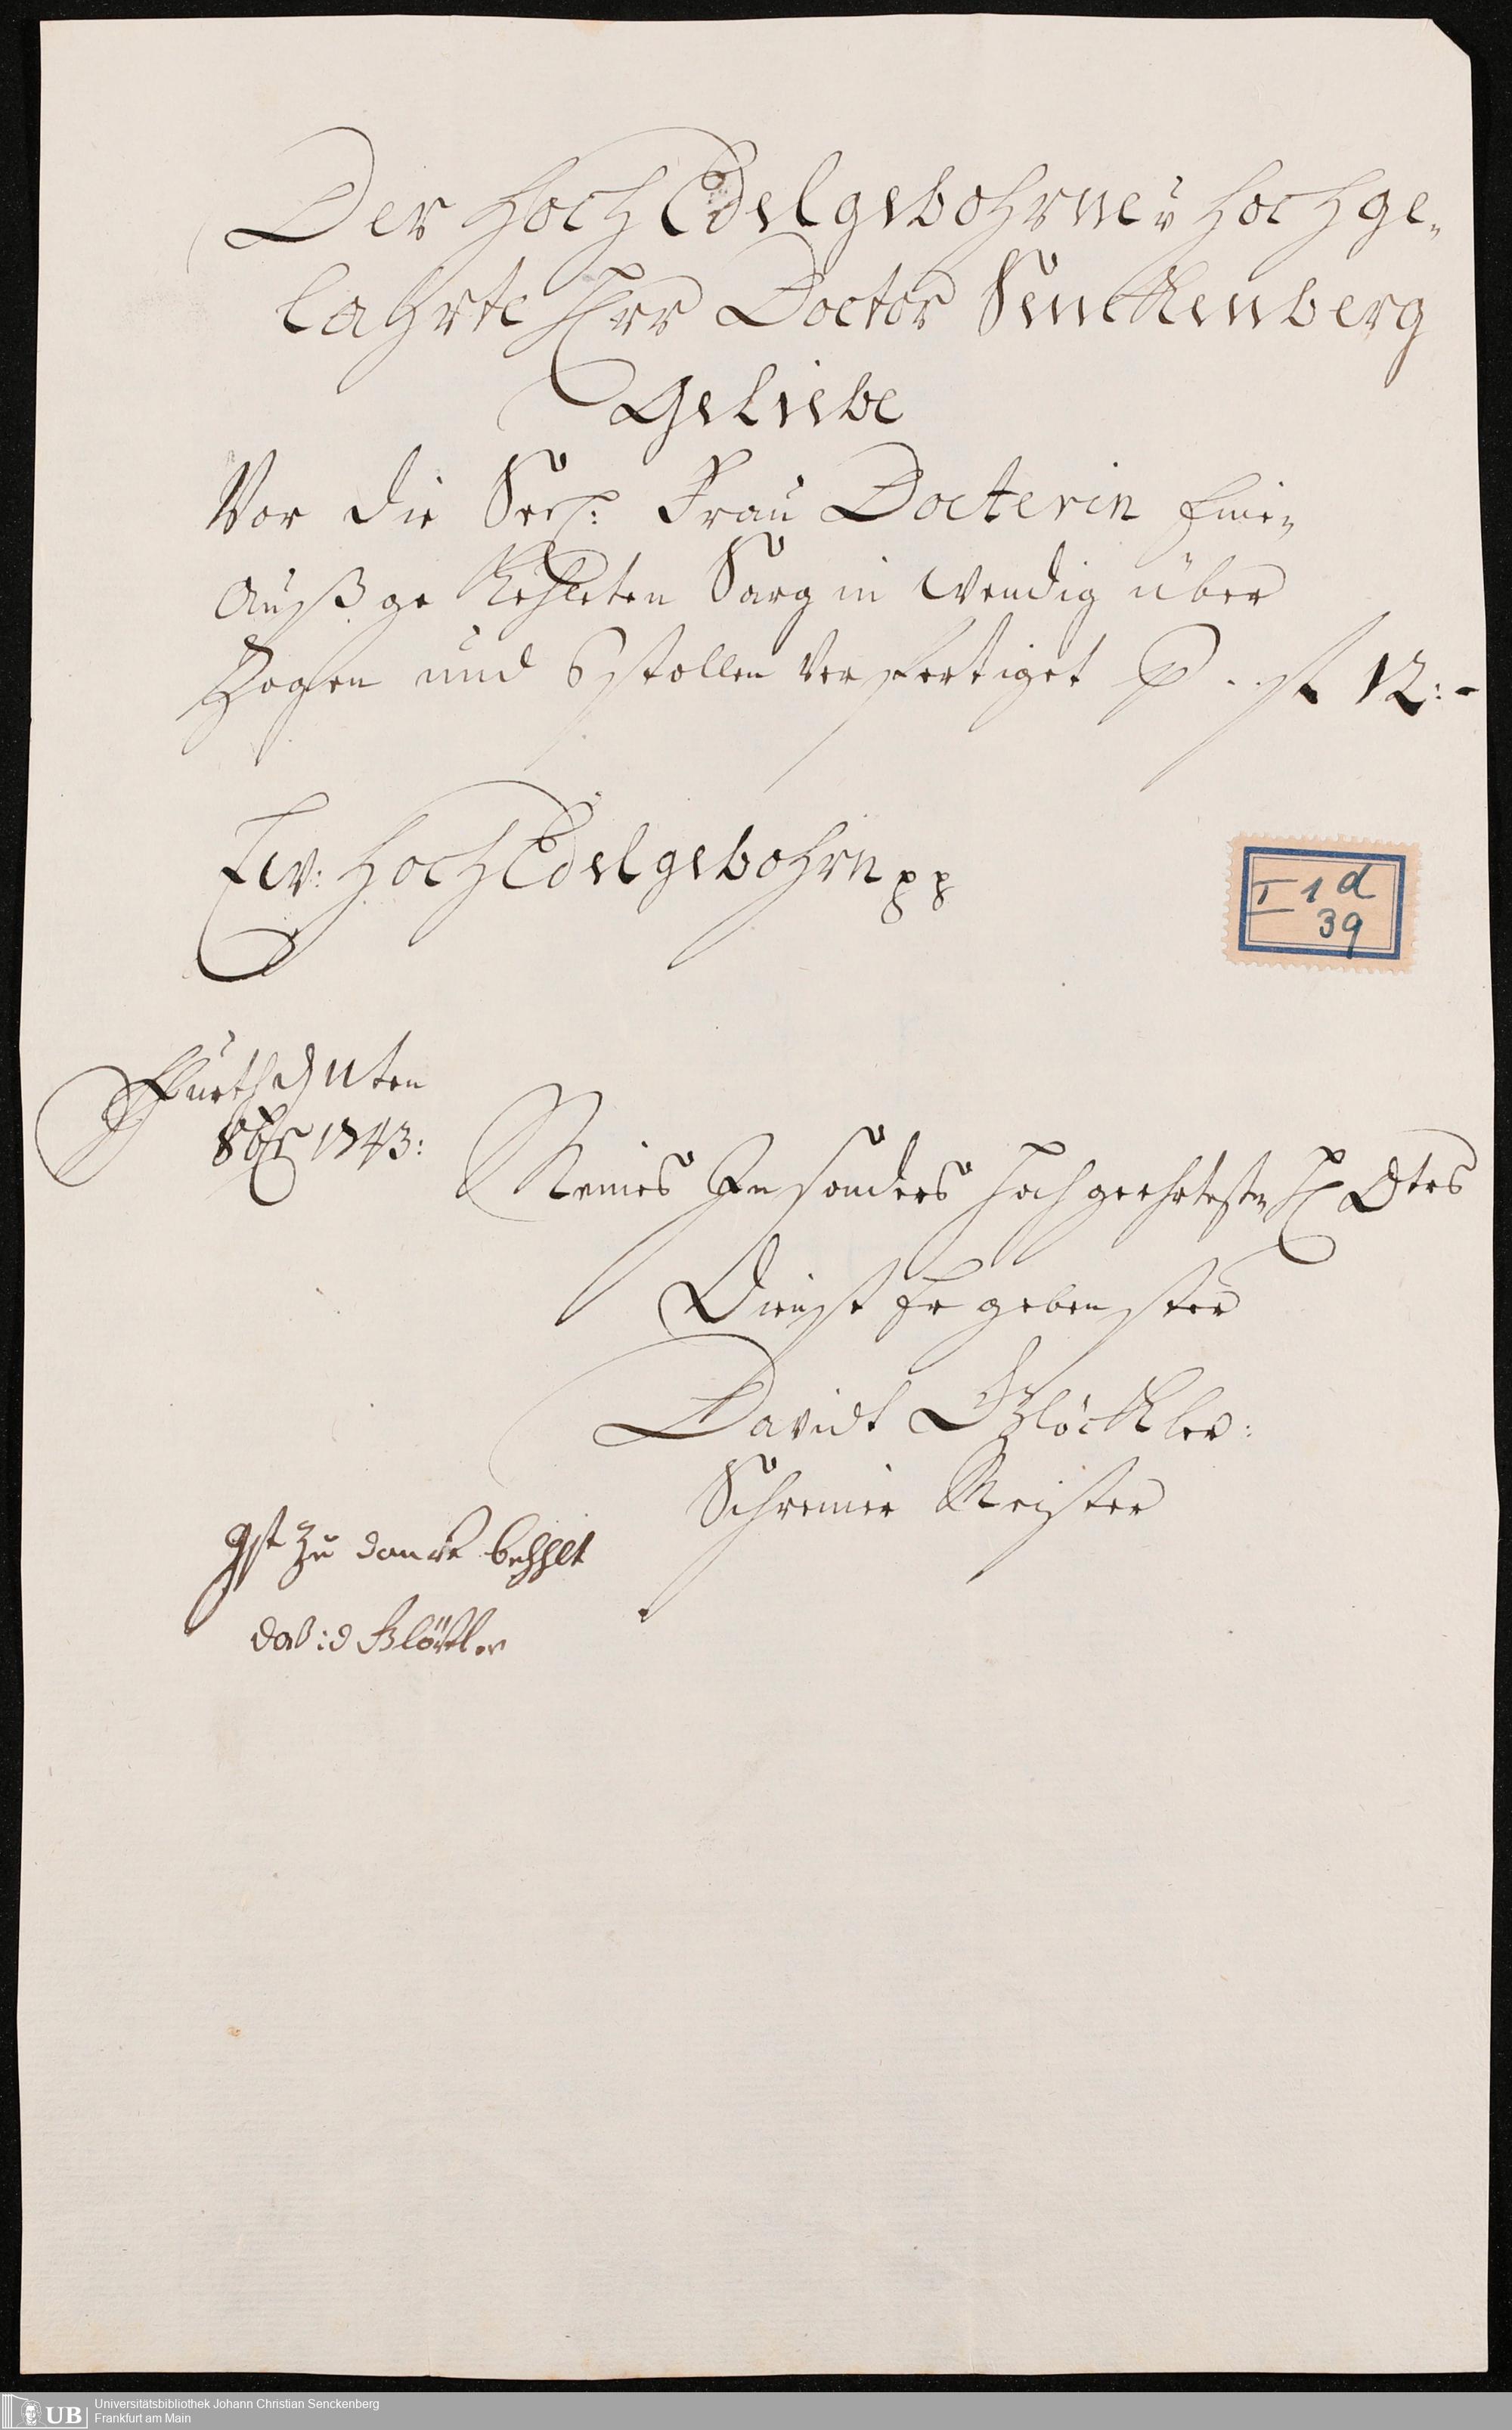 Der Hoch Edelgebohrne u Hochge,
lahrte Herr Doctor Senckenberg
Geliebe
Vor die Seel: Frau Docterin Eine,
Außge Kehleten Sarg in wendig über
Zogen und 6 stollen Verfertiget p. fl 12:-
Ew: Hoch Edelgebohrn pp
I 1 d
39
Ffurth d 11ten
8br 1743:
Meines Insonders Hochgeehrtesten H Dtrs
Dienst Er gebenster
Davidt Blöckler:
Schreiner Meister
Ist zu danck bezhlt
david Blöckler
UB
Universitätsbibliothek Johann Christian Senckenberg
Frankfurt am Main